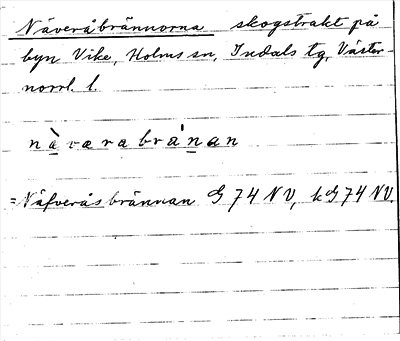 Näveråbrännorna skogstrakt på
byn Vike, Holms sn, Indals tg, Väster-
norrl. l.
nàværabránan
=Näfveråsbrännan G 74 NV, k G 74 NV.